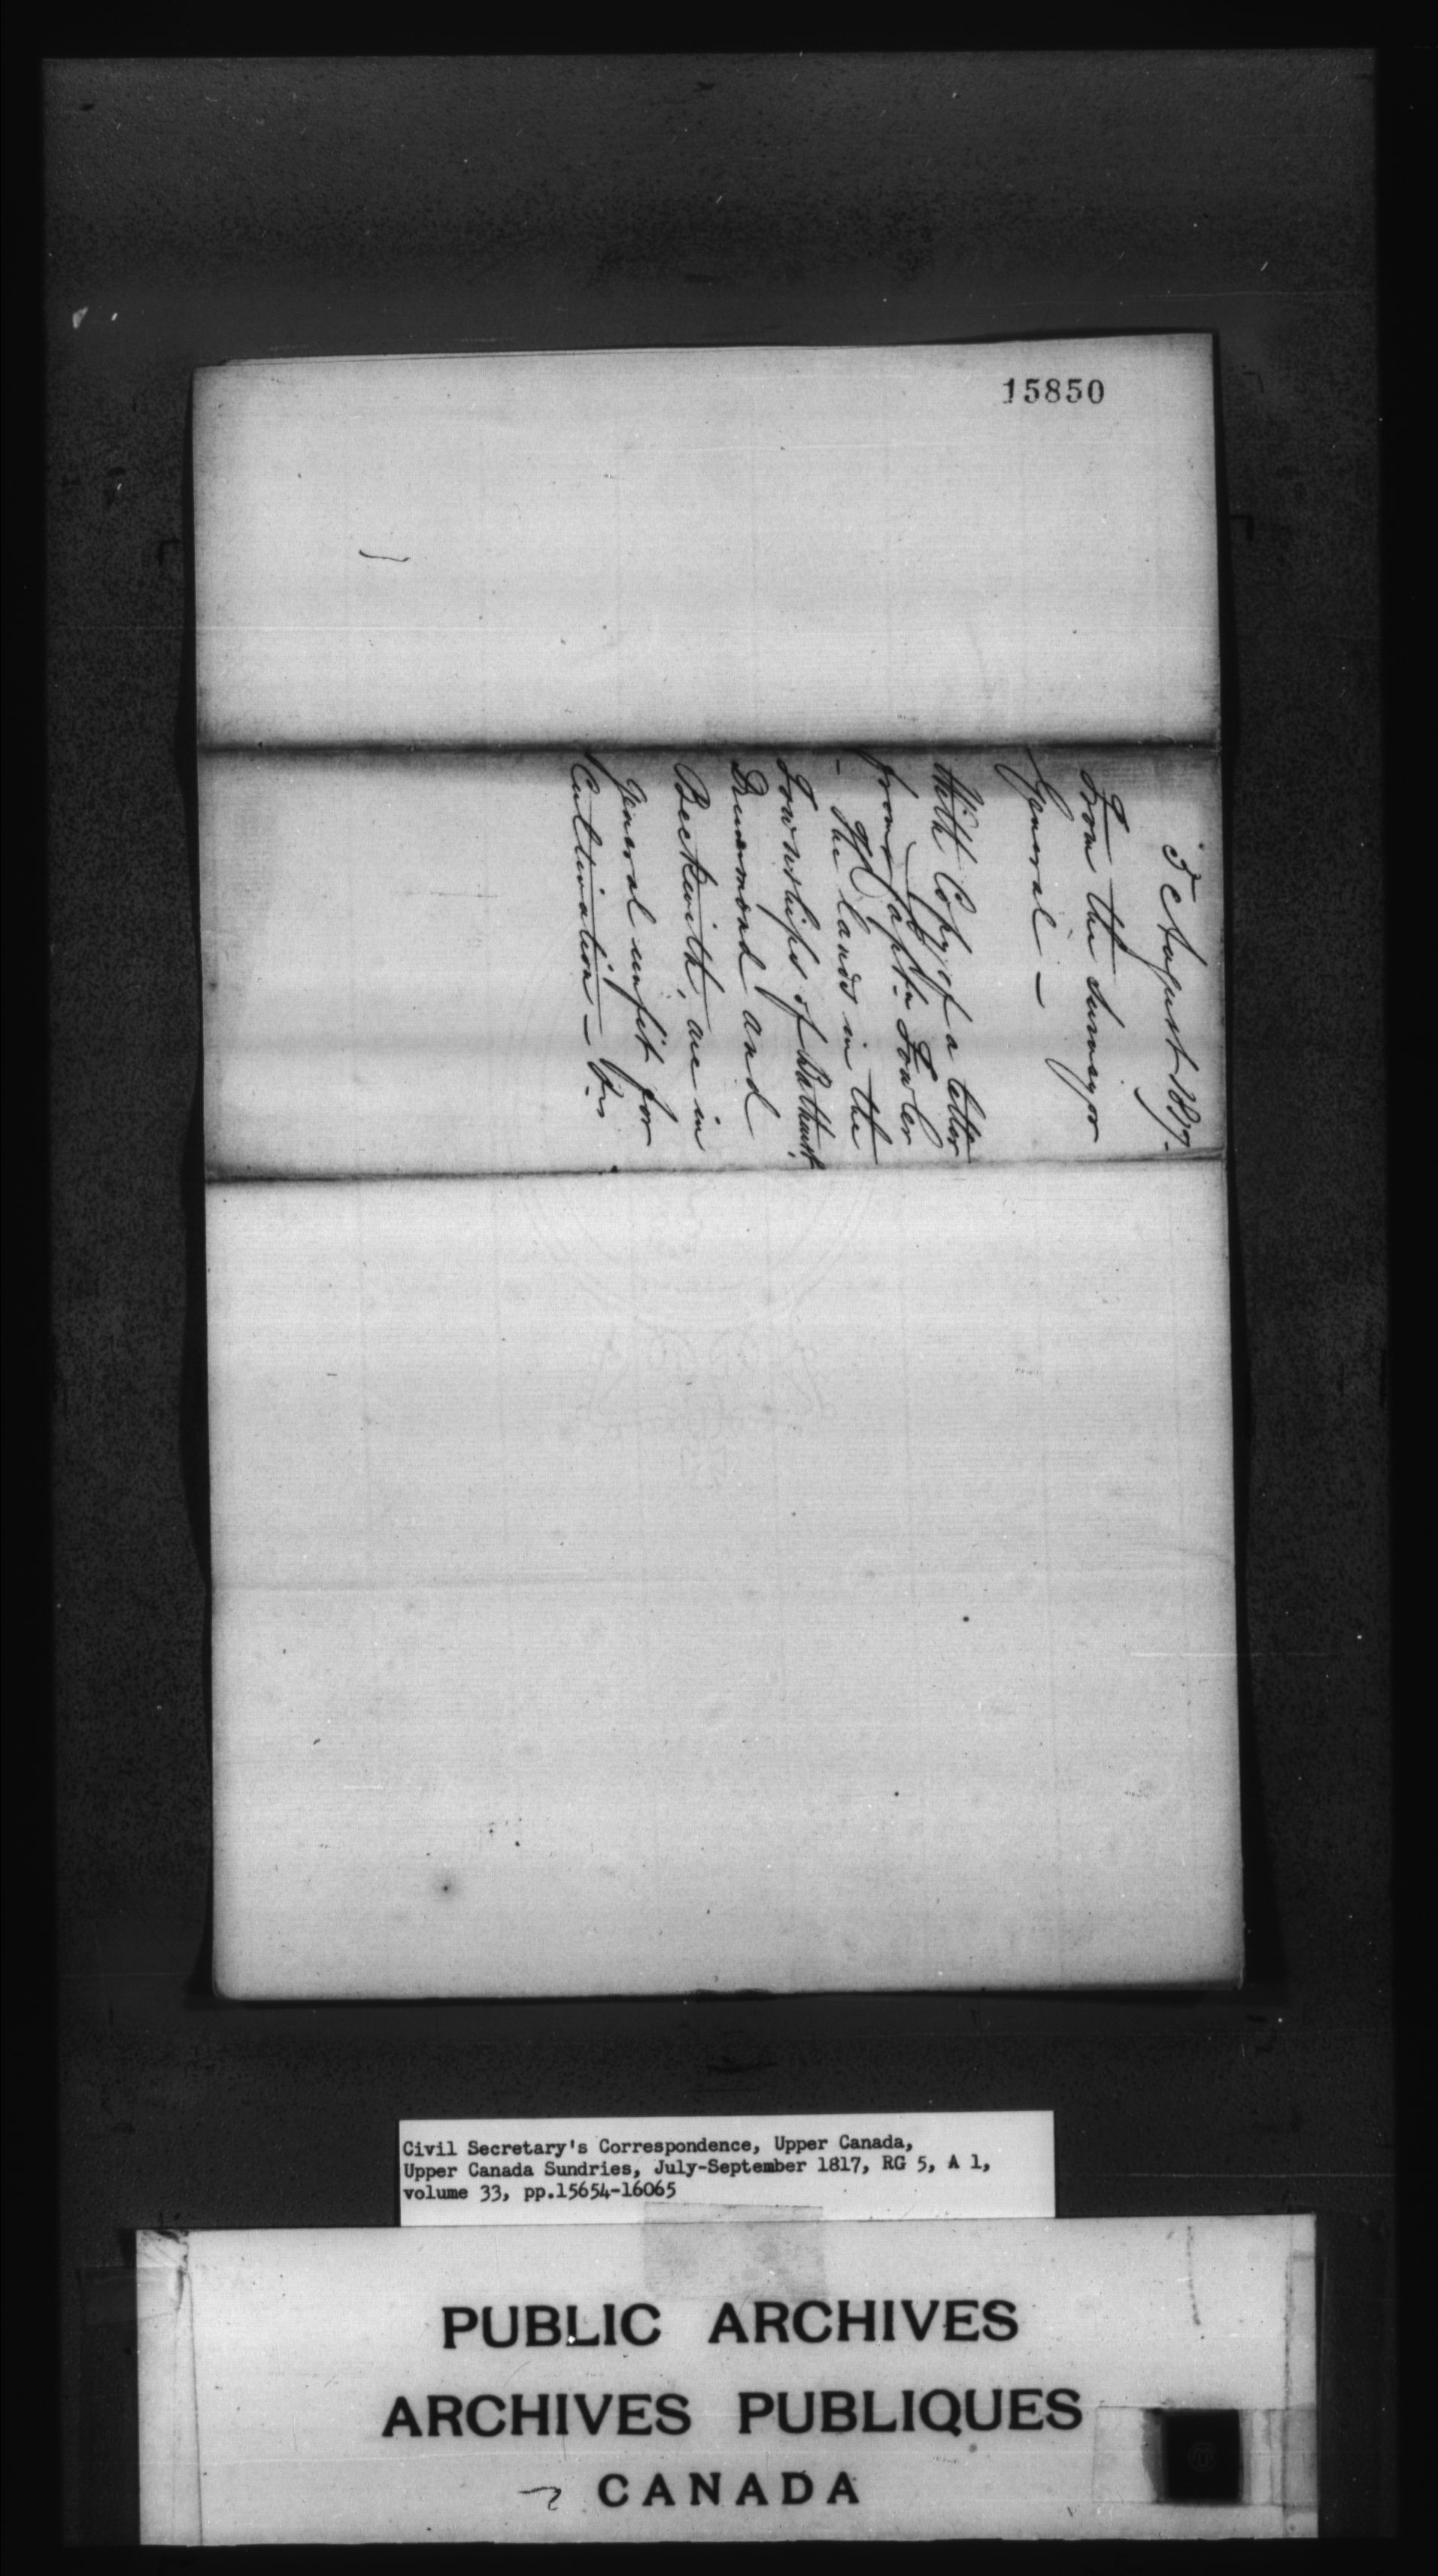 15850
5 August 1817.
From the Surveyor
General —
With Copy of a letter
from Captn. Fowler
— The lands in the
Townships of Bathurst,
Drummond and
Beckwith, are in
general unfit for
Cultivation —
Civil Secretary's Correspondence, Upper Canada,
Upper Canada Sundries, July-September 1817, RG 5, A 1,
volume 33, pp.15654-16065
PUBLIC ARCHIVES
ARCHIVES PUBLIQUES
CANADA